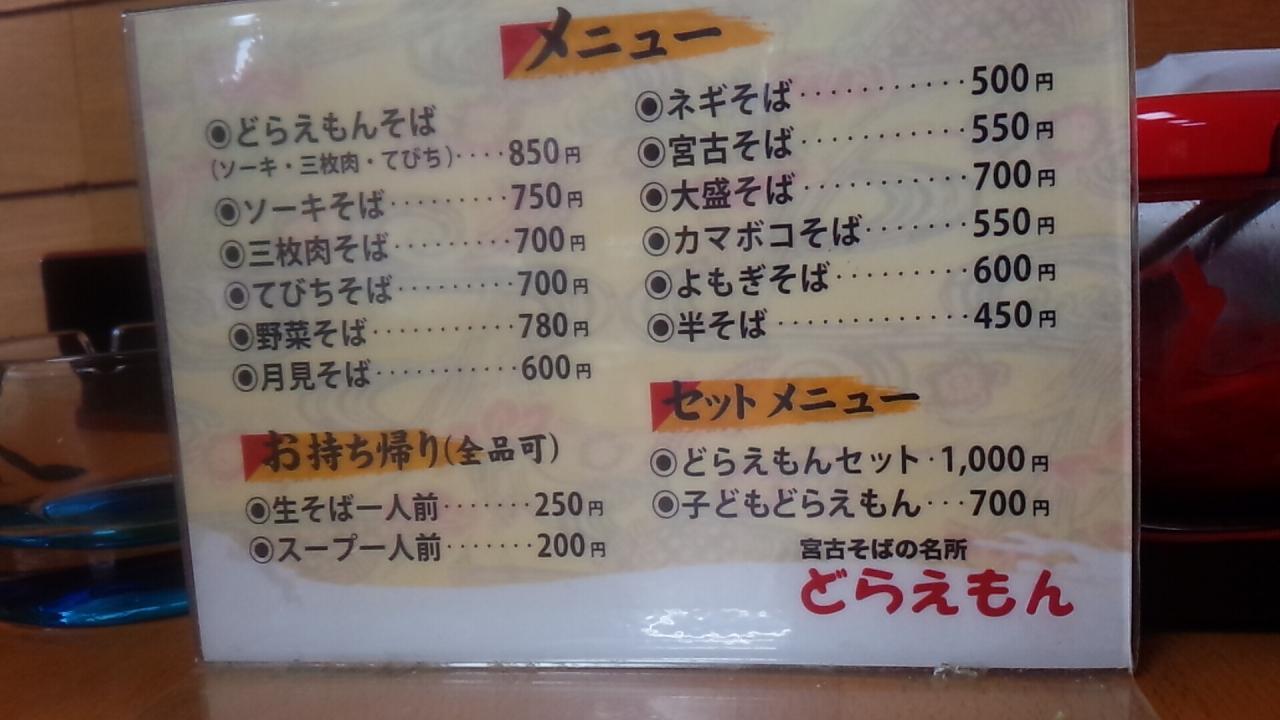 メニュー
◉どらえもんそば
(ソーキ・三枚肉・てびち)‥‥850円
◉ソーキそば‥‥‥‥‥750円
◉三枚肉そば‥‥‥‥‥700円
◉てびちそば‥‥‥‥‥700円
◉野菜そば‥‥‥‥‥‥780円
◉月見そば‥‥‥‥‥‥600円
お持ち帰り(全品可)
◉生そば一人前‥‥‥‥250円
◉スープ一人前‥‥‥‥200円
◉ネギそば‥‥‥‥‥‥500円
◉宮古そば‥‥‥‥‥‥550円
◉大盛そば‥‥‥‥‥‥700円
◉カマボコそば‥‥‥‥550円
◉よもぎそば‥‥‥‥‥600円
◉半そば‥‥‥‥‥‥‥450円
セットメニュー
◉どらえもんセット・1,000円
◉子どもどらえもん‥・700円
宮古そばの名所
どらえもん